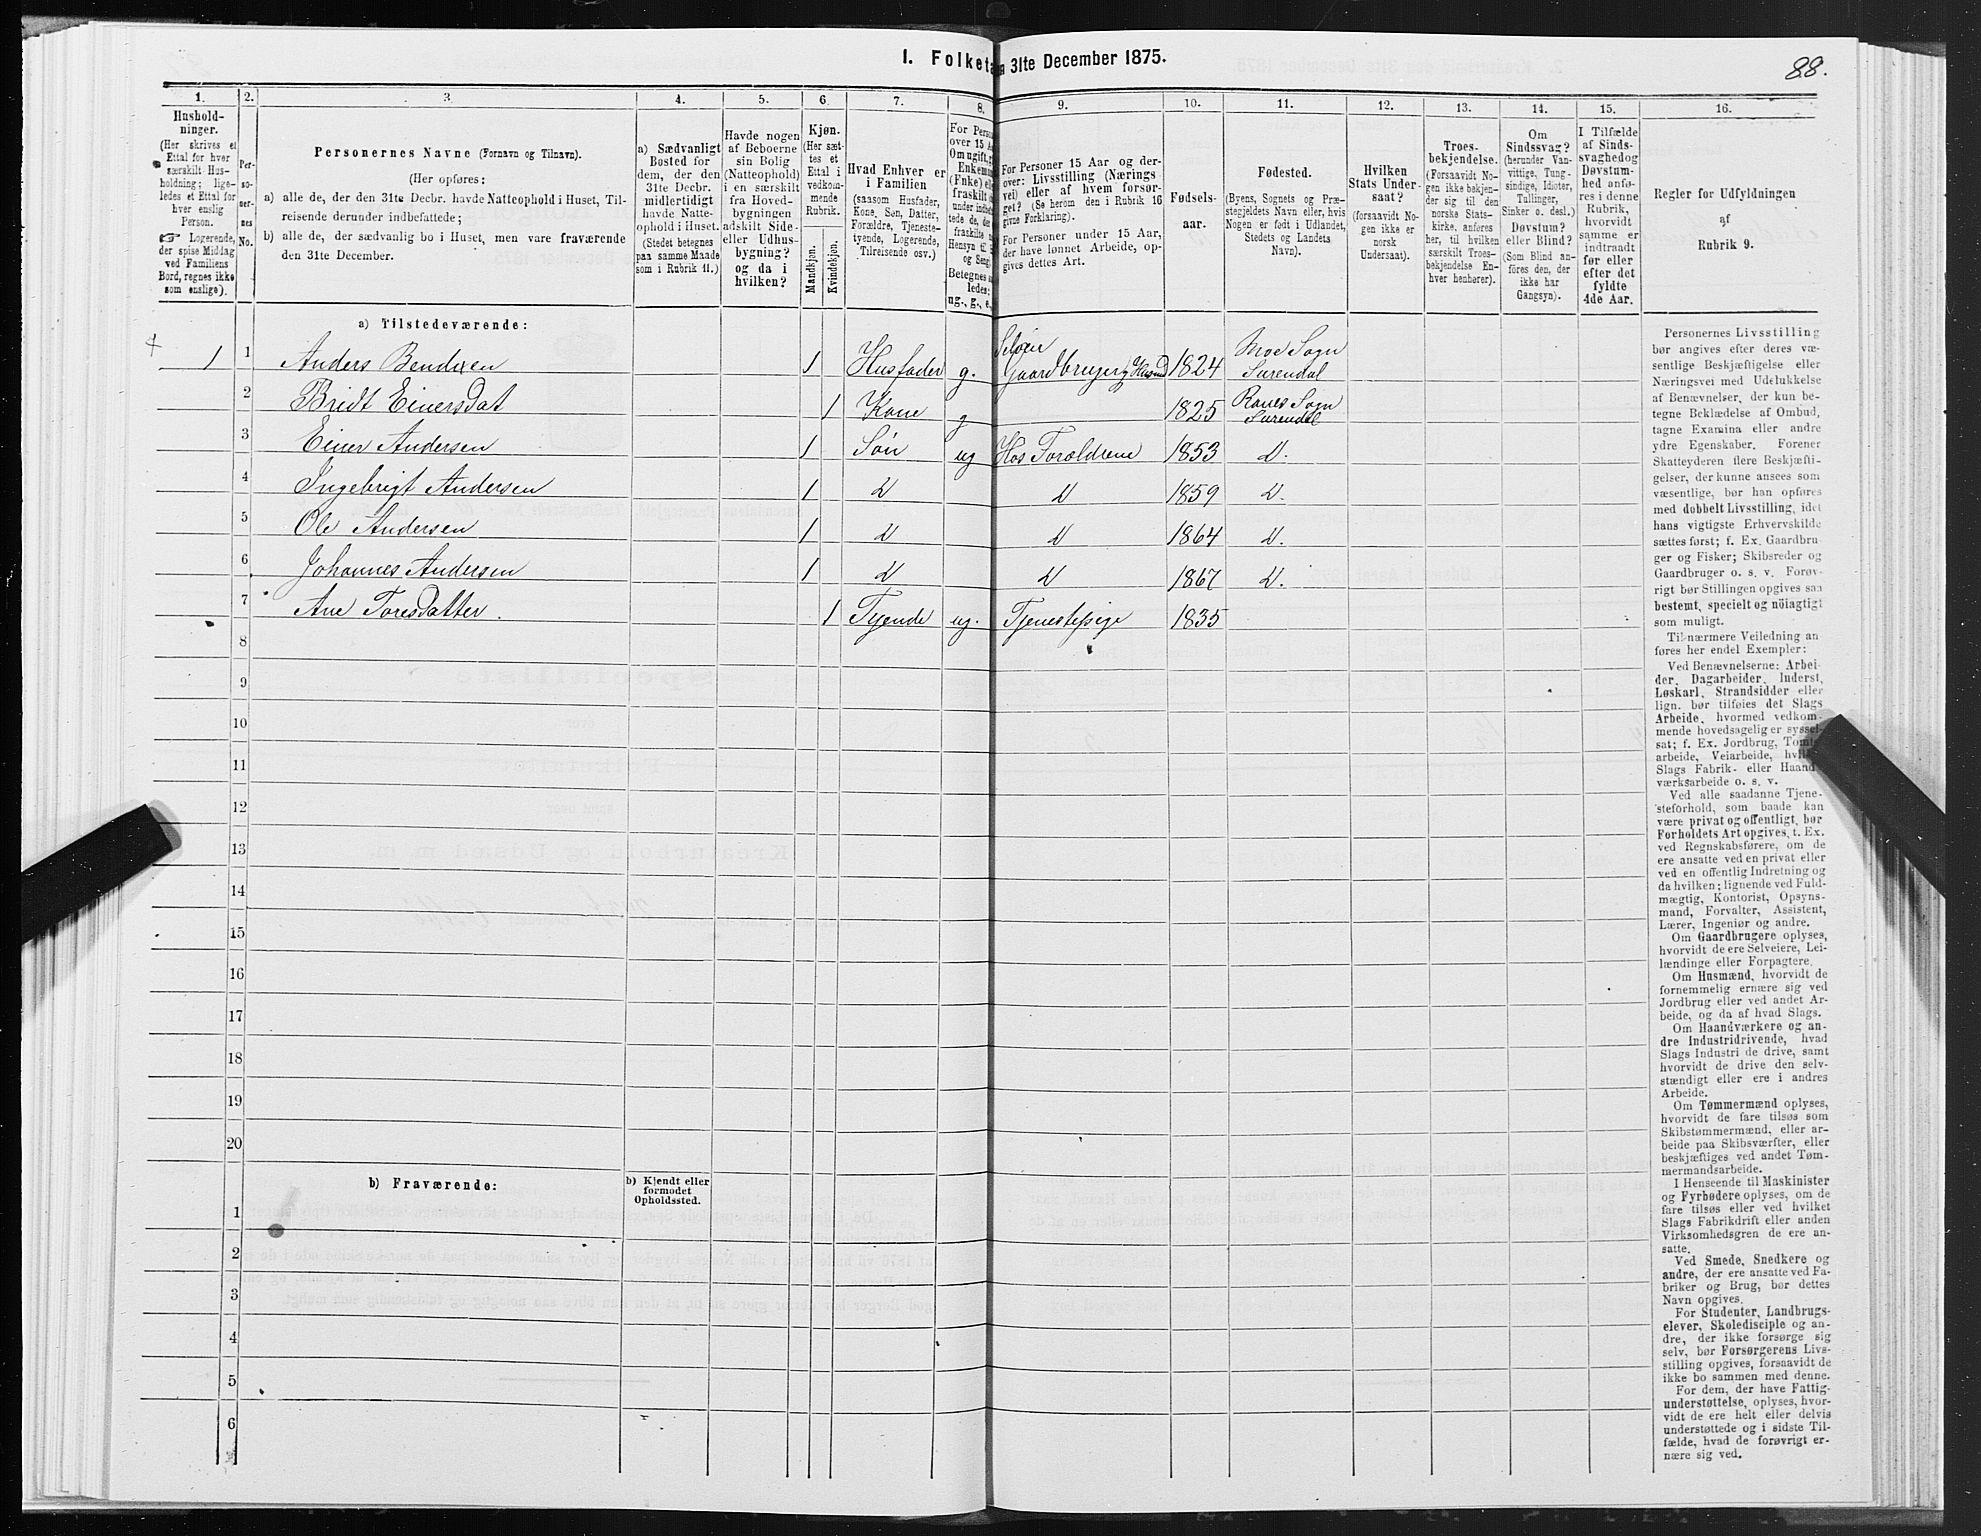 I. Folketa n 31te December 1875.
88.
1. 2. 3. 4. 5. 6. 7. 8. 9. 10. 11. 12. 13. 14. 15. 16.
Hushold-
ninger.
(Her skrives et
Ettal for hver
særskilt Hus-
holdning; lige-
ledes et Ettal for
hver enslig
Person.
Logerende,
der spise Middag
ved Familiens
Bord, regnes ikke
som enslige).
Per-
so-
ner-
nes
No.
Personernes Navne (Fornavn og Tilnavn).
(Her opføres:
a) alle de, der den 31te Decbr. havde Natteophold i Huset, Til-
reisende derunder indbefattede;
b) alle de, der sædvanlig bo i Huset, men vare fraværende
den 31te December.
a) Sædvanligt
Bosted for
dem, der den
31te Decbr.
midlertidigt
havde Natte-
ophold i Huset.
(Stedet betegnes
paa samme Maade
som i Rubrik 11.)
Havde nogen
af Beboerne
sin Bolig
(Natteophold)
i en særskilt
fra Hoved-
bygningen
adskilt Side-
eller Udhus-
bygning?
og da i
hvilken?
Kjøn.
(Her sæt-
tes et
Ettal i
vedkom-
mende
Rubrik.
Mandkjøn.
Kvindekjøn.
Hvad Enhver er
i Familien
(saasom Husfader,
Kone, Søn, Datter,
Forældre, Tjeneste-
tyende, Logerende,
Tilreisende osv.)
For Perso
over 15 A
Om ugift, g
Enkemand
(Enke) ell
fraskilt
under indbefat-
tede de, der
fraskilte
Hensyn til
og Seng
Betegnes s
ledes:
ug., g., e.,
For Personer 15 Aar og der-
over: Livsstilling (Nærings
vei) eller af hvem forsør-
get? (Se herom den i Rubrik 16
givne Forklaring).
For Personer under 15 Aar,
der have lønnet Arbeide, op-
gives dettes Art.
Fødsels-
aar.
Fødested.
(Byens, Sognets og Præ-
stegjeldets Navn eller, hvis
Nogen er født i Udlandet,
Stedets og Landets
Navn).
Hvilken
Stats Under-
saat?
(forsaavidt No-
gen ikke er
norsk
Undersaat).
Troes-
bekjendelse.
(Forsaavidt No-
gen ikke bekjen-
der sig til den
norske Stats-
kirke, anføres
her, til hvilken
særskilt Troes-
bekjendelse En-
hver henhører).
Om
Sindssvag?
(herunder Van-
vittige, Tung-
sindige, Idioter,
Tullinger,
Sinker o. desl.)
Døvstum?
eller Blind?
(Som Blind an-
føres den, der
ikke har
Gangsyn).
I Tilfælde
af Sinds-
svaghedog
Døvstum-
hed anfø-
res i denne
Rubrik,
hvorvidt
samme er
indtraadt
før eller
efter det
fyldte
4de Aar.
Regler for Udfyldningen
af
Rubrik 9.
a) Tilstedeværende:
1 1 Anders Bendixen 1 Husfader g. Selveier Gaardbruger 1824 Moe Sogn Surendal
2 Bridt Einersdat 1 Kone g 1825 Ranes Sogn Surendal
3 Einer Andersen 1 Søn ug Hos Forældrene 1853 D.
4 Ingebrigt Andersen 1 D D 1859 D.
5 Ole Andersen 1 D D 1864 D.
6 Johannes Andersen 1 D D 1867 D.
7 Ane Toresdatter. 1 Tyende ug. Tjenestepige 1835
8
9
10
11
12
13
14
15
16
17
18
19
20
b) Fraværende:
b) Kjendt eller
formodet
Opholdssted.
1
2
3
4
5
6
Personernes Livsstilling
bør angives efter deres væ-
sentlige Beskjæftigelse eller
Næringsvei med Udelukkelse
af Benævnelser, der kun be-
tegne Beklædelse af Ombud,
tagne Examina eller andre
ydre Egenskaber. Forener
Skatteyderen flere Beskjæfti-
gelser, der kunne ansees som
væsentlige, bør han opføres
med dobbelt Livsstilling, idet
hans vigtigste Erhvervskilde
sættes først; f. Ex. Gaardbru-
ger og Fisker; Skibsreder og
Gaardbruger o. s. v. Forøv-
rigt bør Stillingen opgives saa
bestemt, specielt og nöiagtigt
som muligt.
Til nærmere Veiledning an
føres her endel Exempler:
Ved Benævnelserne: Arbei-
der, Dagarbeider, Inderst,
Løskarl, Strandsidder eller
lign. bør tilføies det Slags
Arbeide, hvormed vedkom-
mende hovedsagelig er syssel-
sat; f. Ex. Jordbrug, Tomte-
arbeide, Veiarbeide, hvilket
Slags Fabrik- eller Haand-
værksarbeide o. s. v.
Ved alle saadanne Tjene-
steforhold, som baade kan
være privat og offentligt, bør
Forholdets Art opgives, t. Ex.
ved Regnskabsførere, om de
ere ansatte ved en privat eller
ved en offentlig Indretning og
da hvilken; lignende ved Fuld-
mægtig, Kontorist, Opsyns-
mand, Forvalter, Assistent,
Lærer, Ingeniør og andre.
Om Gaardbrugere oplyses,
hvorvidt de ere Selveiere, Lei-
lændinge eller Forpagtere.
Om Husmænd, hvorvidt de
fornemmelig ernære sig ved
Jordbrug eller ved andet Ar-
beide, og da af hvad Slags.
Om Haandværkere og an-
dre Industridrivende, hvad
Slags Industri de drive, samt
hvorvidt de drive den selv-
stændigt eller ere i andres
Arbeide.
Om Tømmermænd oplyses,
hvorvidt de fare tilsøs som
Skibstømmermænd, eller ar-
beide paa Skibsværfter, eller
beskjæftiges ved andet Tøm-
mermandsarbeide.
I Henseende til Maskinister
og Fyrbødere oplyses, om de
fare tilsøs eller ved hvilket
Slags Fabrikdrift eller anden
Virksomhedsgren de ere an-
satte.
Ved Smede, Snedkere og
andre, der ere ansatte ved Fa-
briker og Brug, bør dettes
Navn opgives.
For Studenter, Landbrugs-
elever, Skoledisciple og an-
dre, der ikke forsørge sig
selv, bør Forsørgerens Livs-
stilling opgives, forsaavidt de
ikke bo sammen med denne.
For dem, der have Fattig-
understøttelse, oplyses, hvor-
vidt de ere helt eller delvis
understøttede og i sidste Til-
fælde, hvad de forøvrigt er-
nære sig ved.